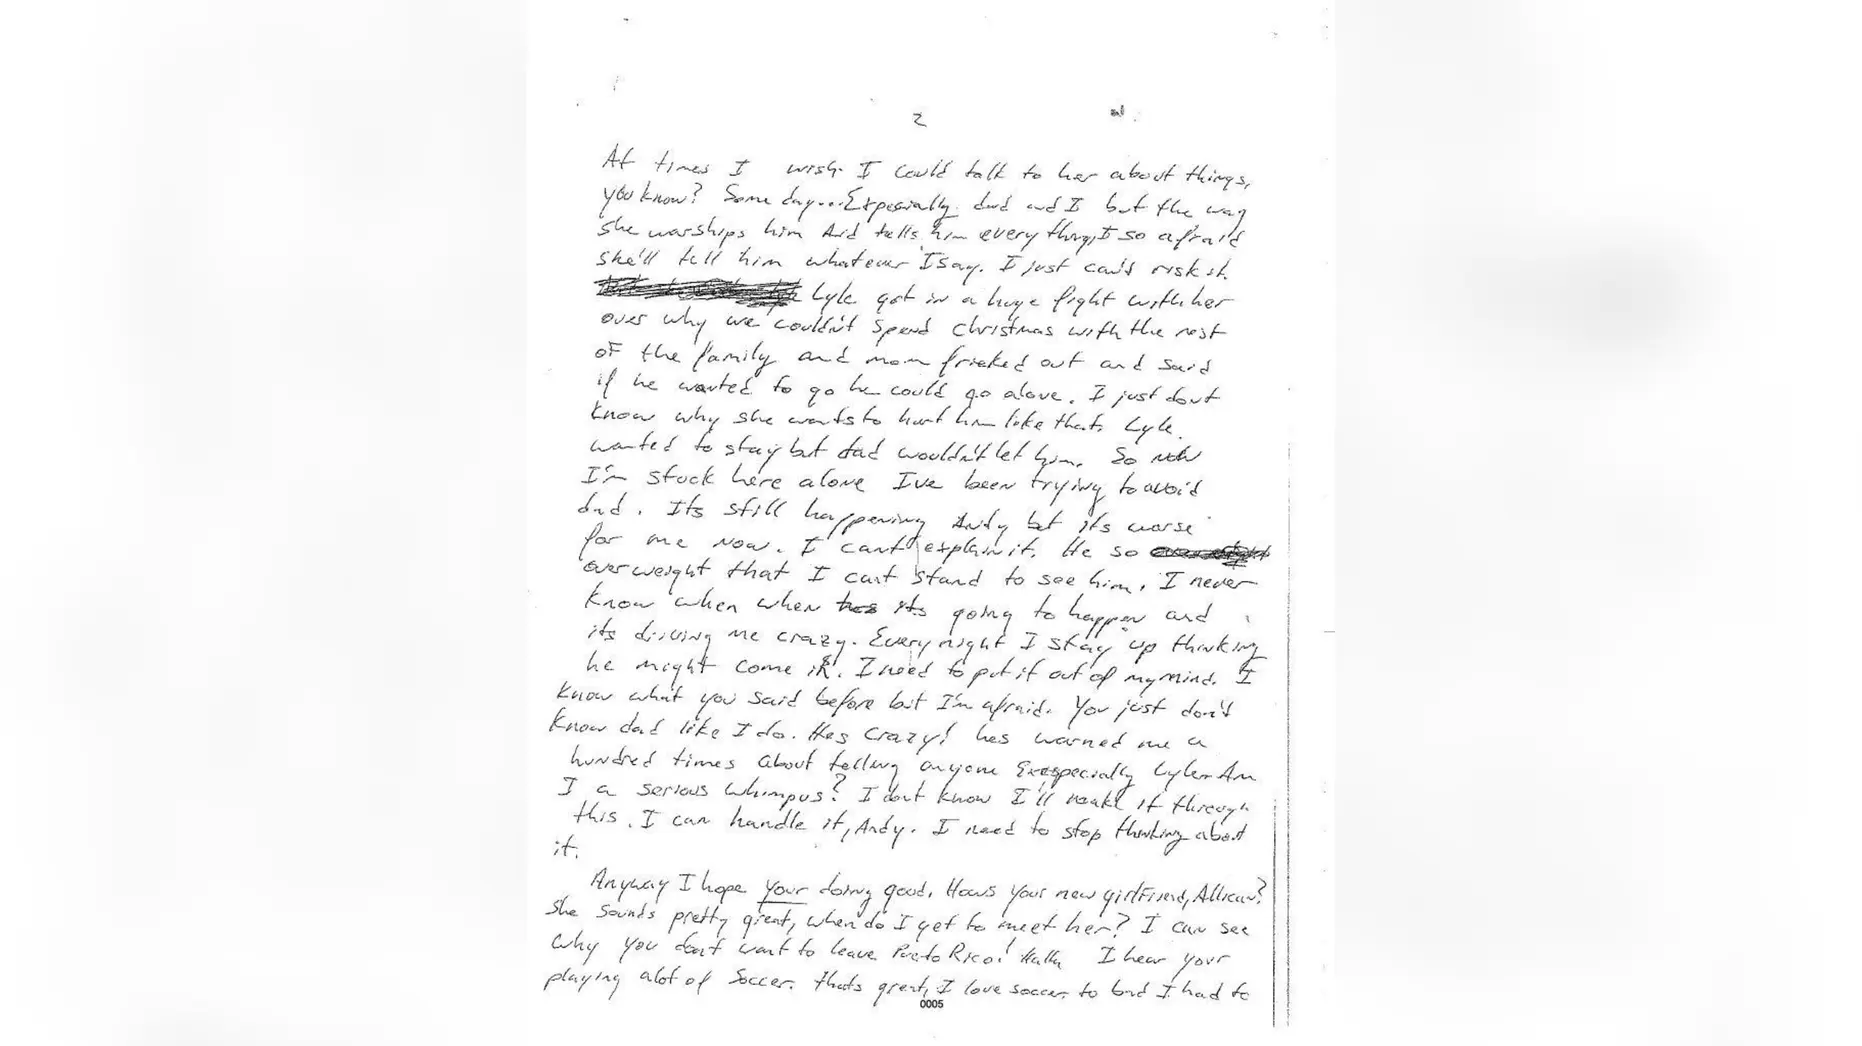 2
At times I wish I could talk to her about things,
you know? Some day... Expecially dad and I but the way
she warships him And tells him every thing, I so afraid
she'll tell him whatever I say. I just can't risk it.
Lyle got in a huge fight with her
over why we couldn't spend christmas with the rest
of the family and mom frieked out and said
if he wanted to go he could go alone. I just dont
know why she wants to hurt him like that. Lyle
wanted to stay but dad wouldn't let him. So now
I'm stuck here alone I've been trying to avoid
dad. Its still happening Andy but its worse
for me now. I can't explain it. He so
overweight that I cant stand to see him. I never
know when when its going to happen and
its driving me crazy. Every night I stay up thinking
he might come in. I need to put it out of my mind. I
know what you said before but I'm afraid. You just don't
know dad like I do. Hes crazy! hes warned me a
hundred times about telling anyone Exspecially Lyle. Am
I a serious whimpus? I dont know I'll make it through
this. I can handle it, Andy. I need to stop thinking about
it.
Anyway I hope your doing good. Hows your new girlfriend,
She sounds pretty great, when do I get to meet her? I can see
why you dont want to leave Puerto Rico! I hear your
playing alot of Soccer. thats great, I love soccer to bad I had to
0005